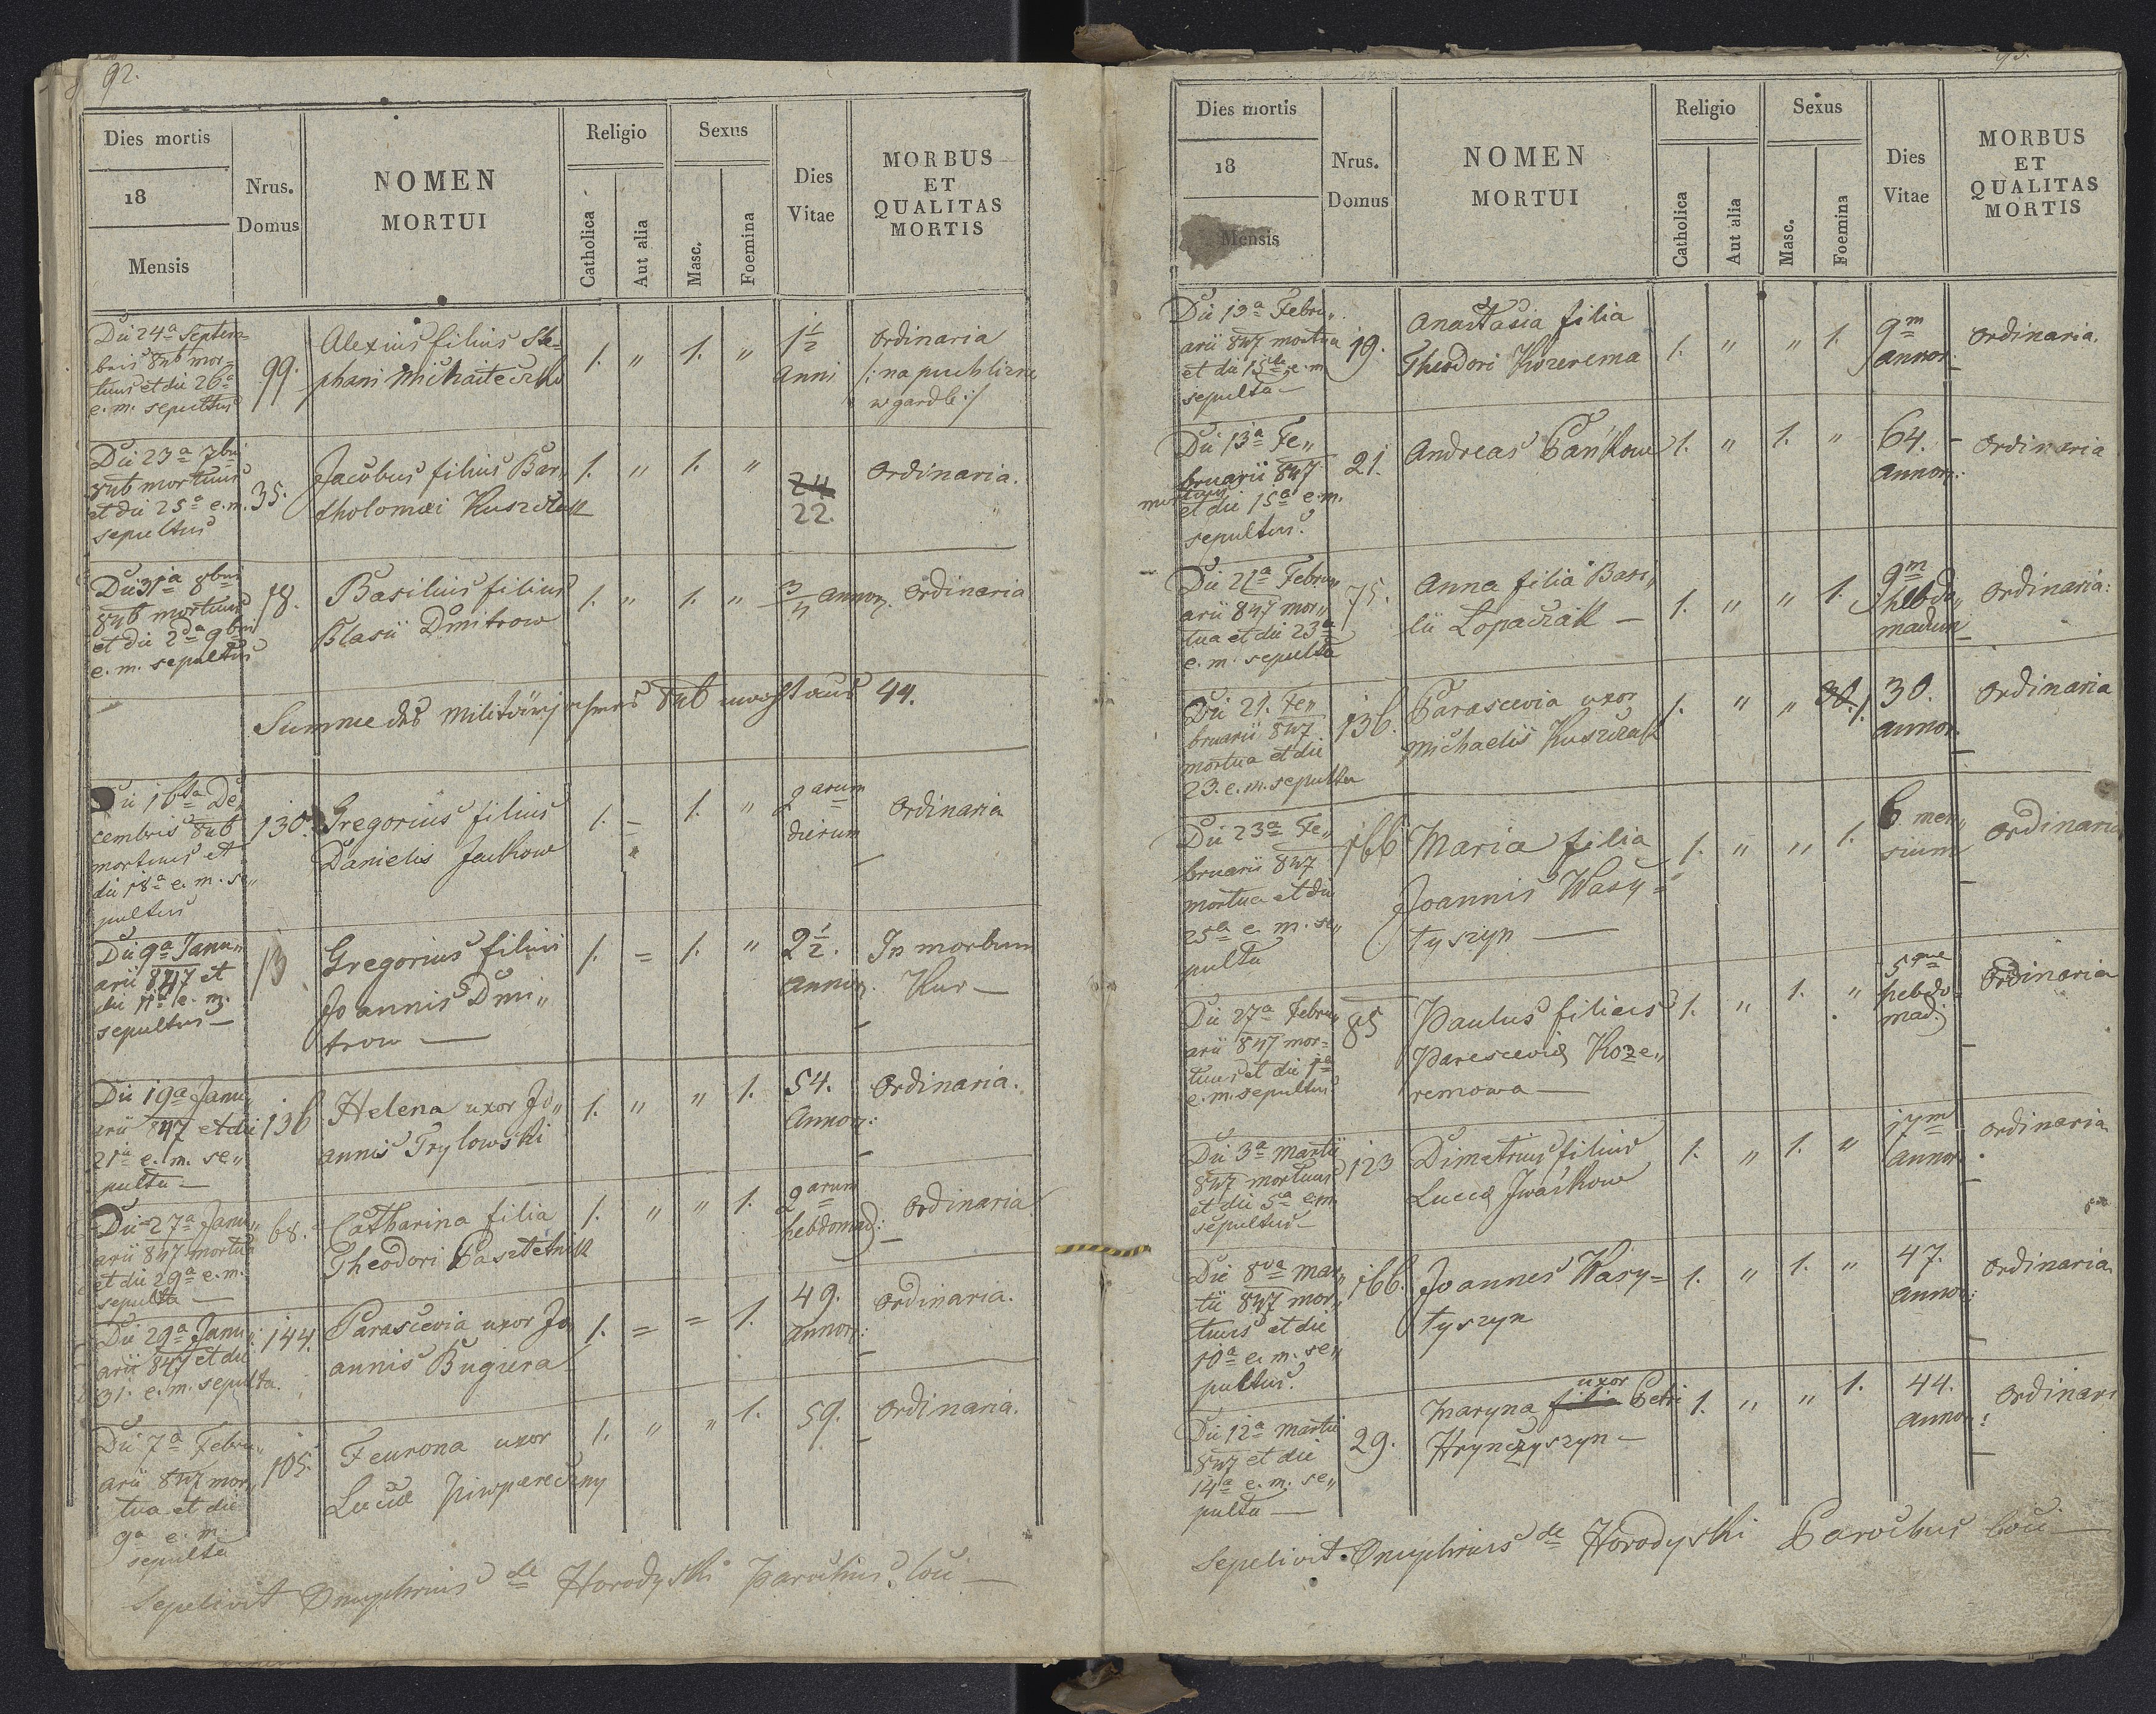 92.
Dies mortis
18
Mensis
Nrus. Domus
NOMEN MORTUI
Religio
Catholica
Aut alia
Sexus
Masc.
Foemina
Dies Vitae
MORBUS ET QUALITAS MORTIS
Die 24a Septem=
bris 846 mor=
tuus et die 26a
e. m. sepultus
99.
Alexius filius Ste=
phani
1. " 1. "
1½
anni
ordinaria
/: na puchlizne
w gardle :/
Die 23a 7bri
846 mortuus
et die 25a e. m.
sepultus
35.
Jacobus filius Bar"
tholomaei Kuszczak
1. " 1. "
24
22.
Ordinaria.
Die 31a 8bris
846 mortuus
et die 2da 9bris
e. m. sepultus
78.
Basilius filius
Blasii Dmitrow
1. " 1. "
annor.
Ordinaria
Summe des Militärjahres 846 macht aus 44.
Die 16ta De"
cembris 846
mortuus et
die 18a e. m. se"
pultus
130.
Gregorius filius
Danielis Jackow
1. = " 1. "
2arum
dierum
Ordinaria
Die 9a Janu"
arii 847 et
die 11a e. m.
sepultus —
13
Gregorius filius
Joannis Dmi"
trow —
1. = 1. "
2½.
annor.
In morbum
Kur —
Die 19a Janu"
arii 847 et die
21a e. m. se"
pulta —
136
Helena uxor Jo"
annis Trylowski
1. " " 1.
54.
Annor:
Ordinaria.
Die 27a Janu"
arii 847 mortua
et die 29a e. m.
sepulta —
68.
Catharina filia
Theodori Pasztetnik
1. " " 1.
2arum
hebdomad:
Ordinaria
Die 29a Janu"
arii 847 et die
31. e. m. sepulta.
144.
Parascevia uxor Jo"
annis Bugiera
1. = = 1.
49.
annor:
Ordinaria.
Die 7a Febru"
arii 847 mor"
tua et die
9a e. m.
sepulta
105.
Feurona uxor
Lucae Piwpareczny
1. " " 1.
59.
Ordinaria.
Sepelivit Onuphrius de Horodyski Parochus loci —
Dies mortis
18
Mensis
Nrus. Domus
NOMEN MORTUI
Religio
Catholica
Aut alia
Sexus
Masc.
Foemina
Dies Vitae
MORBUS ET QUALITAS MORTIS
Die 13a Febru"
arii 847 mortua
et die 15a e. m
sepulta —
19.
Anastasia filia
Theodori Kozerema
1. " " 1.
9m
annor.
Ordinaria.
Die 13a Fe"
bruarii 847
mortuus
et die 15a e. m.
sepultus.
21.
Andreas Pańkow
1. " 1. "
64.
Annor:
Ordinaria
Die 21a Febru"
arii 847 mor"
tua et die 23a
e. m. sepulta
75.
Anna filia Basi"
lii Lopaczak —
1. " " 1.
9m
hebdo"
madum
Ordinaria:
Die 21. Fe"
bruarii 847
mortua et die
23. e. m. sepulta
136.
Parascevia uxor
Michaelis Kuszczak
1. " " 1.
30.
annor.
Ordinaria
Die 23a Fe"
bruarii 847
mortua et die
25a e. m. se"
pulta
166
Maria filia
Joannis Wasy=
tyszyn —
1. " " 1.
6 men"
sium
Ordinaria
Die 27a Febru"
arii 847 mor=
tuus et die 1a
e. m. sepultus
85
Paulus filius
Paresceviae Koze"
remowa —
1. " 1. "
5que
hebdo=
mad.
Ordinaria
Die 3a Martii
847 mortuus
et die 5a e. m.
sepultus —
123
Dimetrius filius
Lucae Iwaśkow
1. " 1. "
annor.
Ordinaria
Die 8va Mar"
tii 847 mor"
tuus et die
10a e. m. se"
pultus.
166.
Joannes Wasy=
tyszyn
1. " 1. "
47.
annor:
Ordinaria
Die 12a Martii
847 et die
14a e. m. se"
pulta —
29.
uxor
Maryna filia Petri
Hrynczyszyn —
1. " " 1.
44.
annor:
Ordinari
Sepelivit Onuphrius de Horodyski Parochus loci —